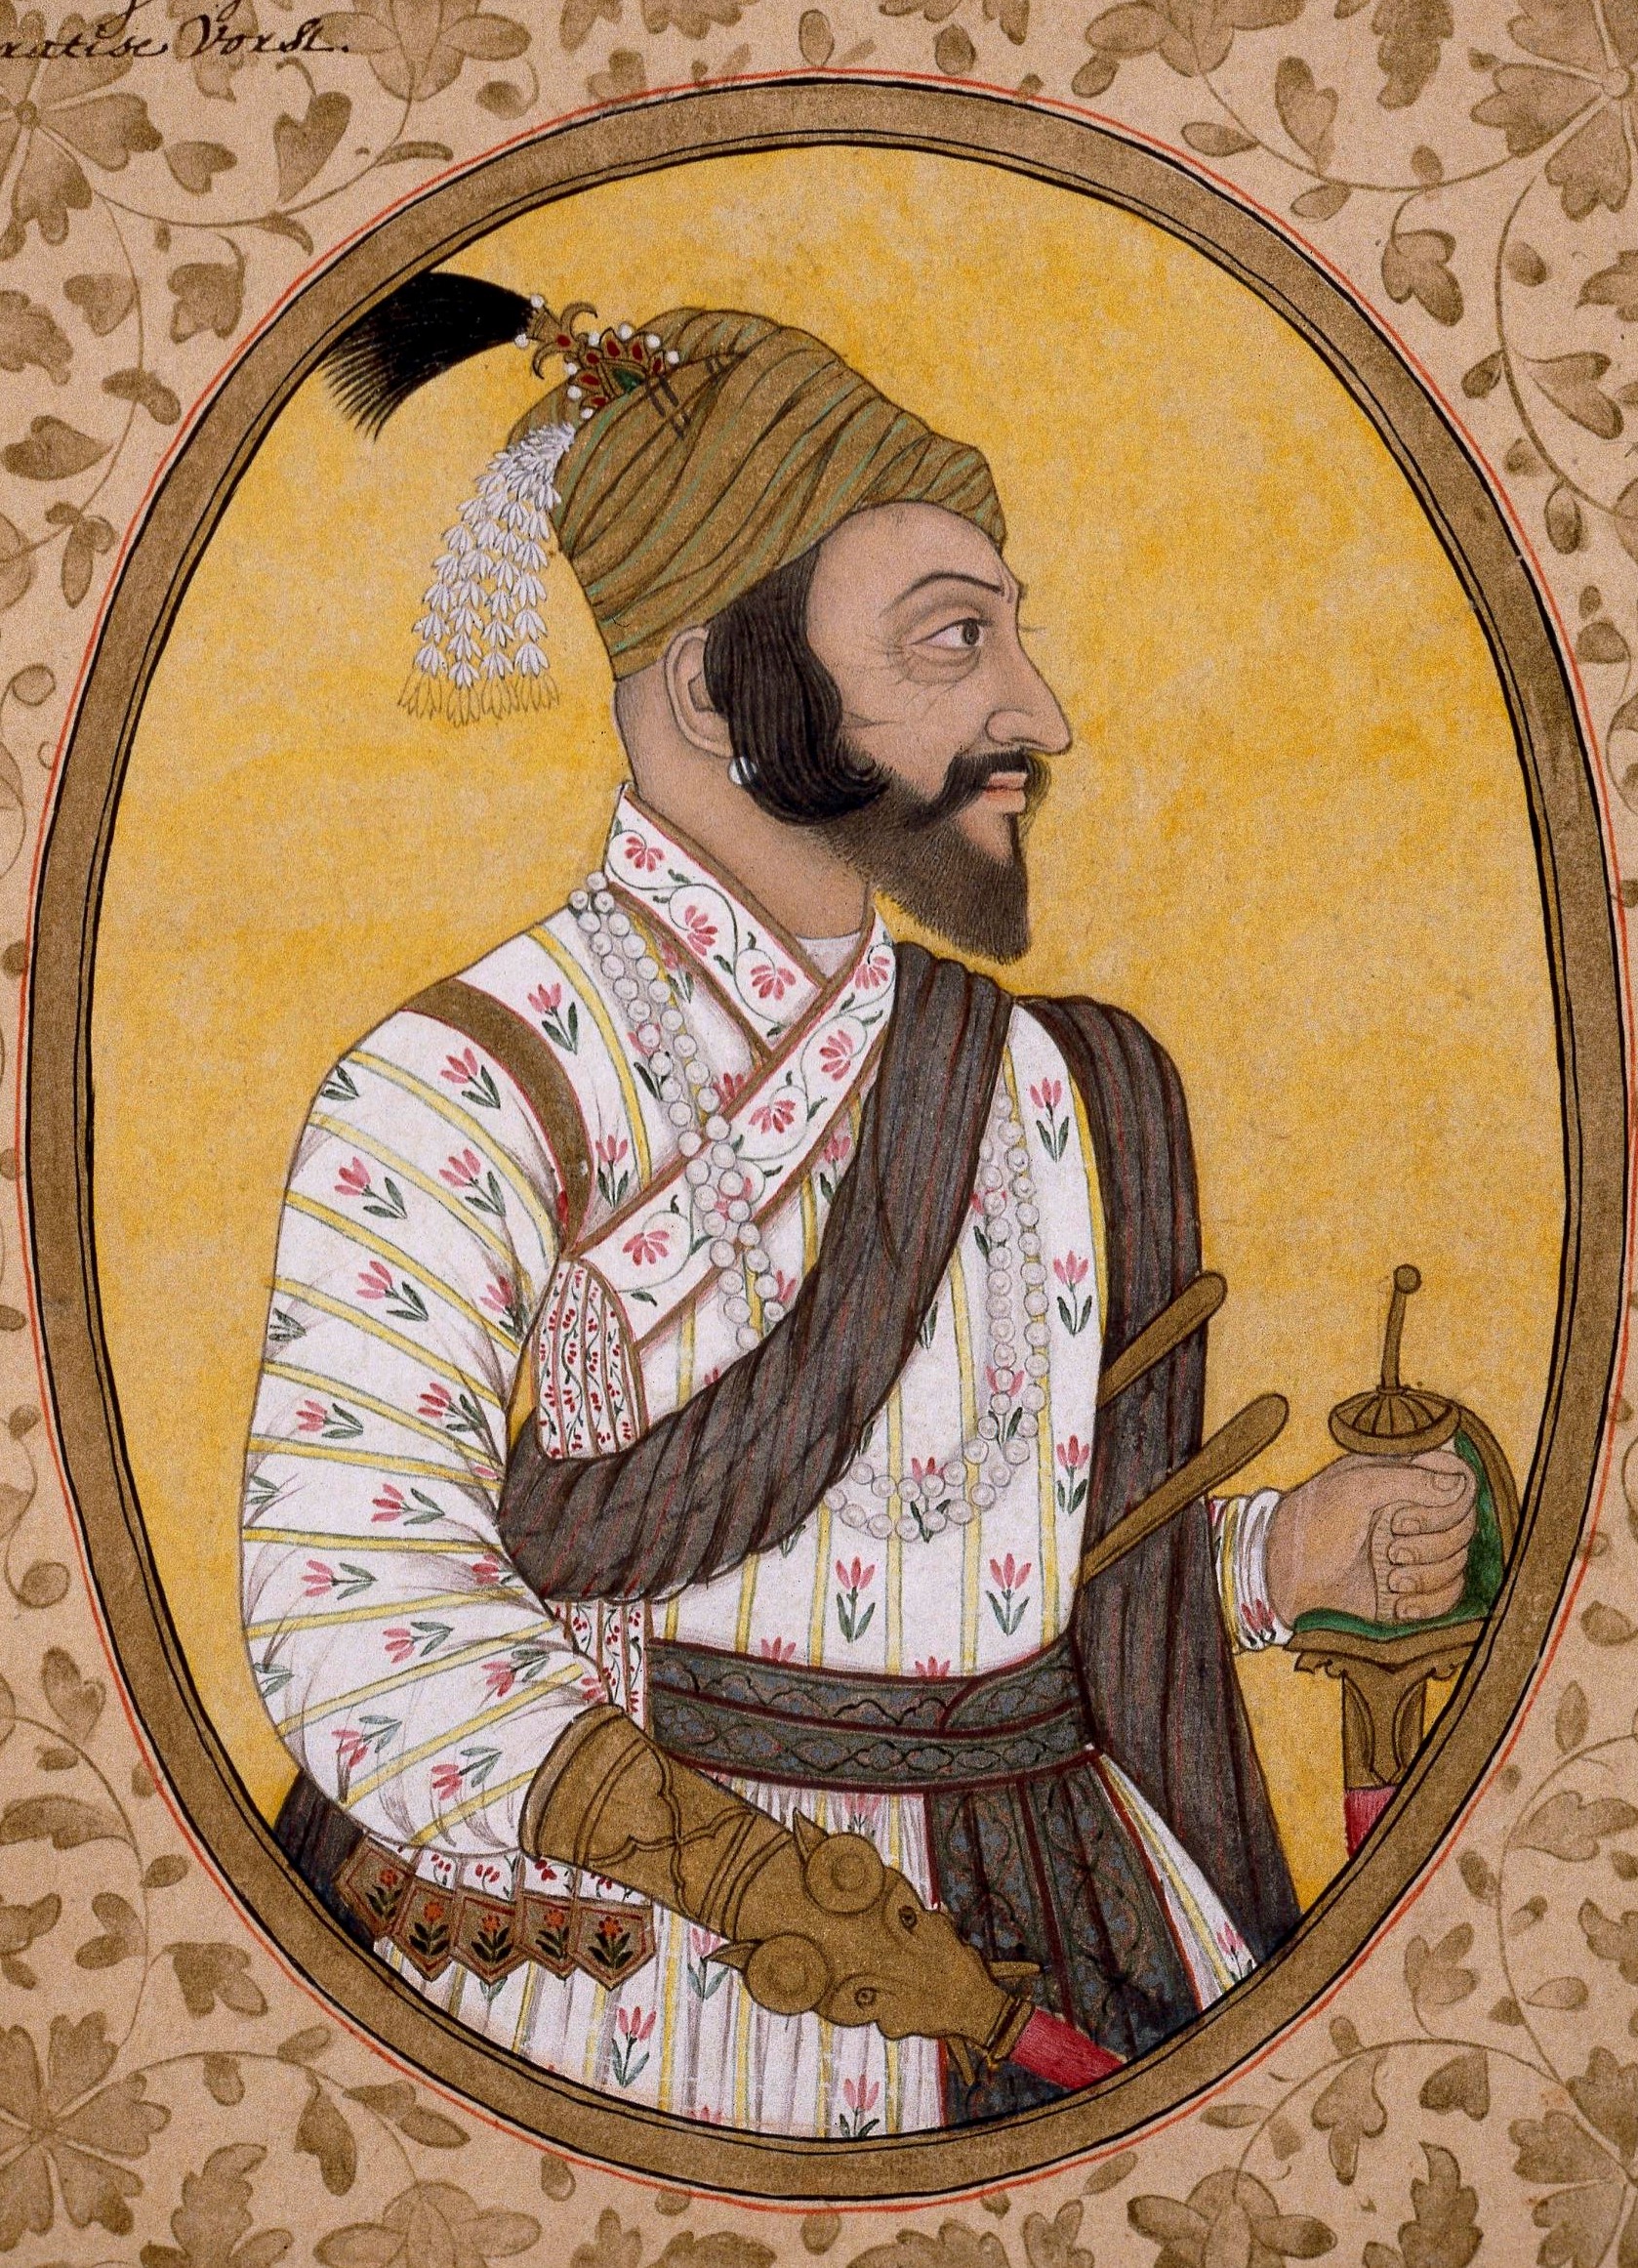 ratise Vorst.